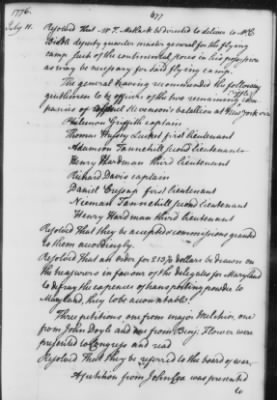 1776.
477
July 11.
Resolved that Mr. T. Matlack be directed to deliver to Mr. C.
Biddle deputy quarter master general for the flying
camp such of the continental stores in his possession
as may be necessary for said flying camp.
The general having recommended the following
gentlemen to be officers of the two remaining com
panies of Stevenson's battalion at New York viz
Philemon Griffith captain
Thomas Hussey Lucket first lieutenant
Adamson Tannehill second lieutenant
Henry Hardman third lieutenant
Richard Davis captain
Daniel Cressap first lieutenant
Ninian Tannehill second lieutenant
Henry Hardman third lieutenant
Resolved That they be accepted & commissions granted
to them accordingly.
Resolved That an order for 213 1/3 dollars be drawn on
the treasurers in favour of the delegates for Maryland
to defray the expences of transporting powder to
Maryland, they to be accountable.
Three petitions, one from major Melchior, one
from John Doyle and one from Benj. Flower were
presented to Congress and read
Resolved That they be referred to the board of war.
A petition from John Cox was presented